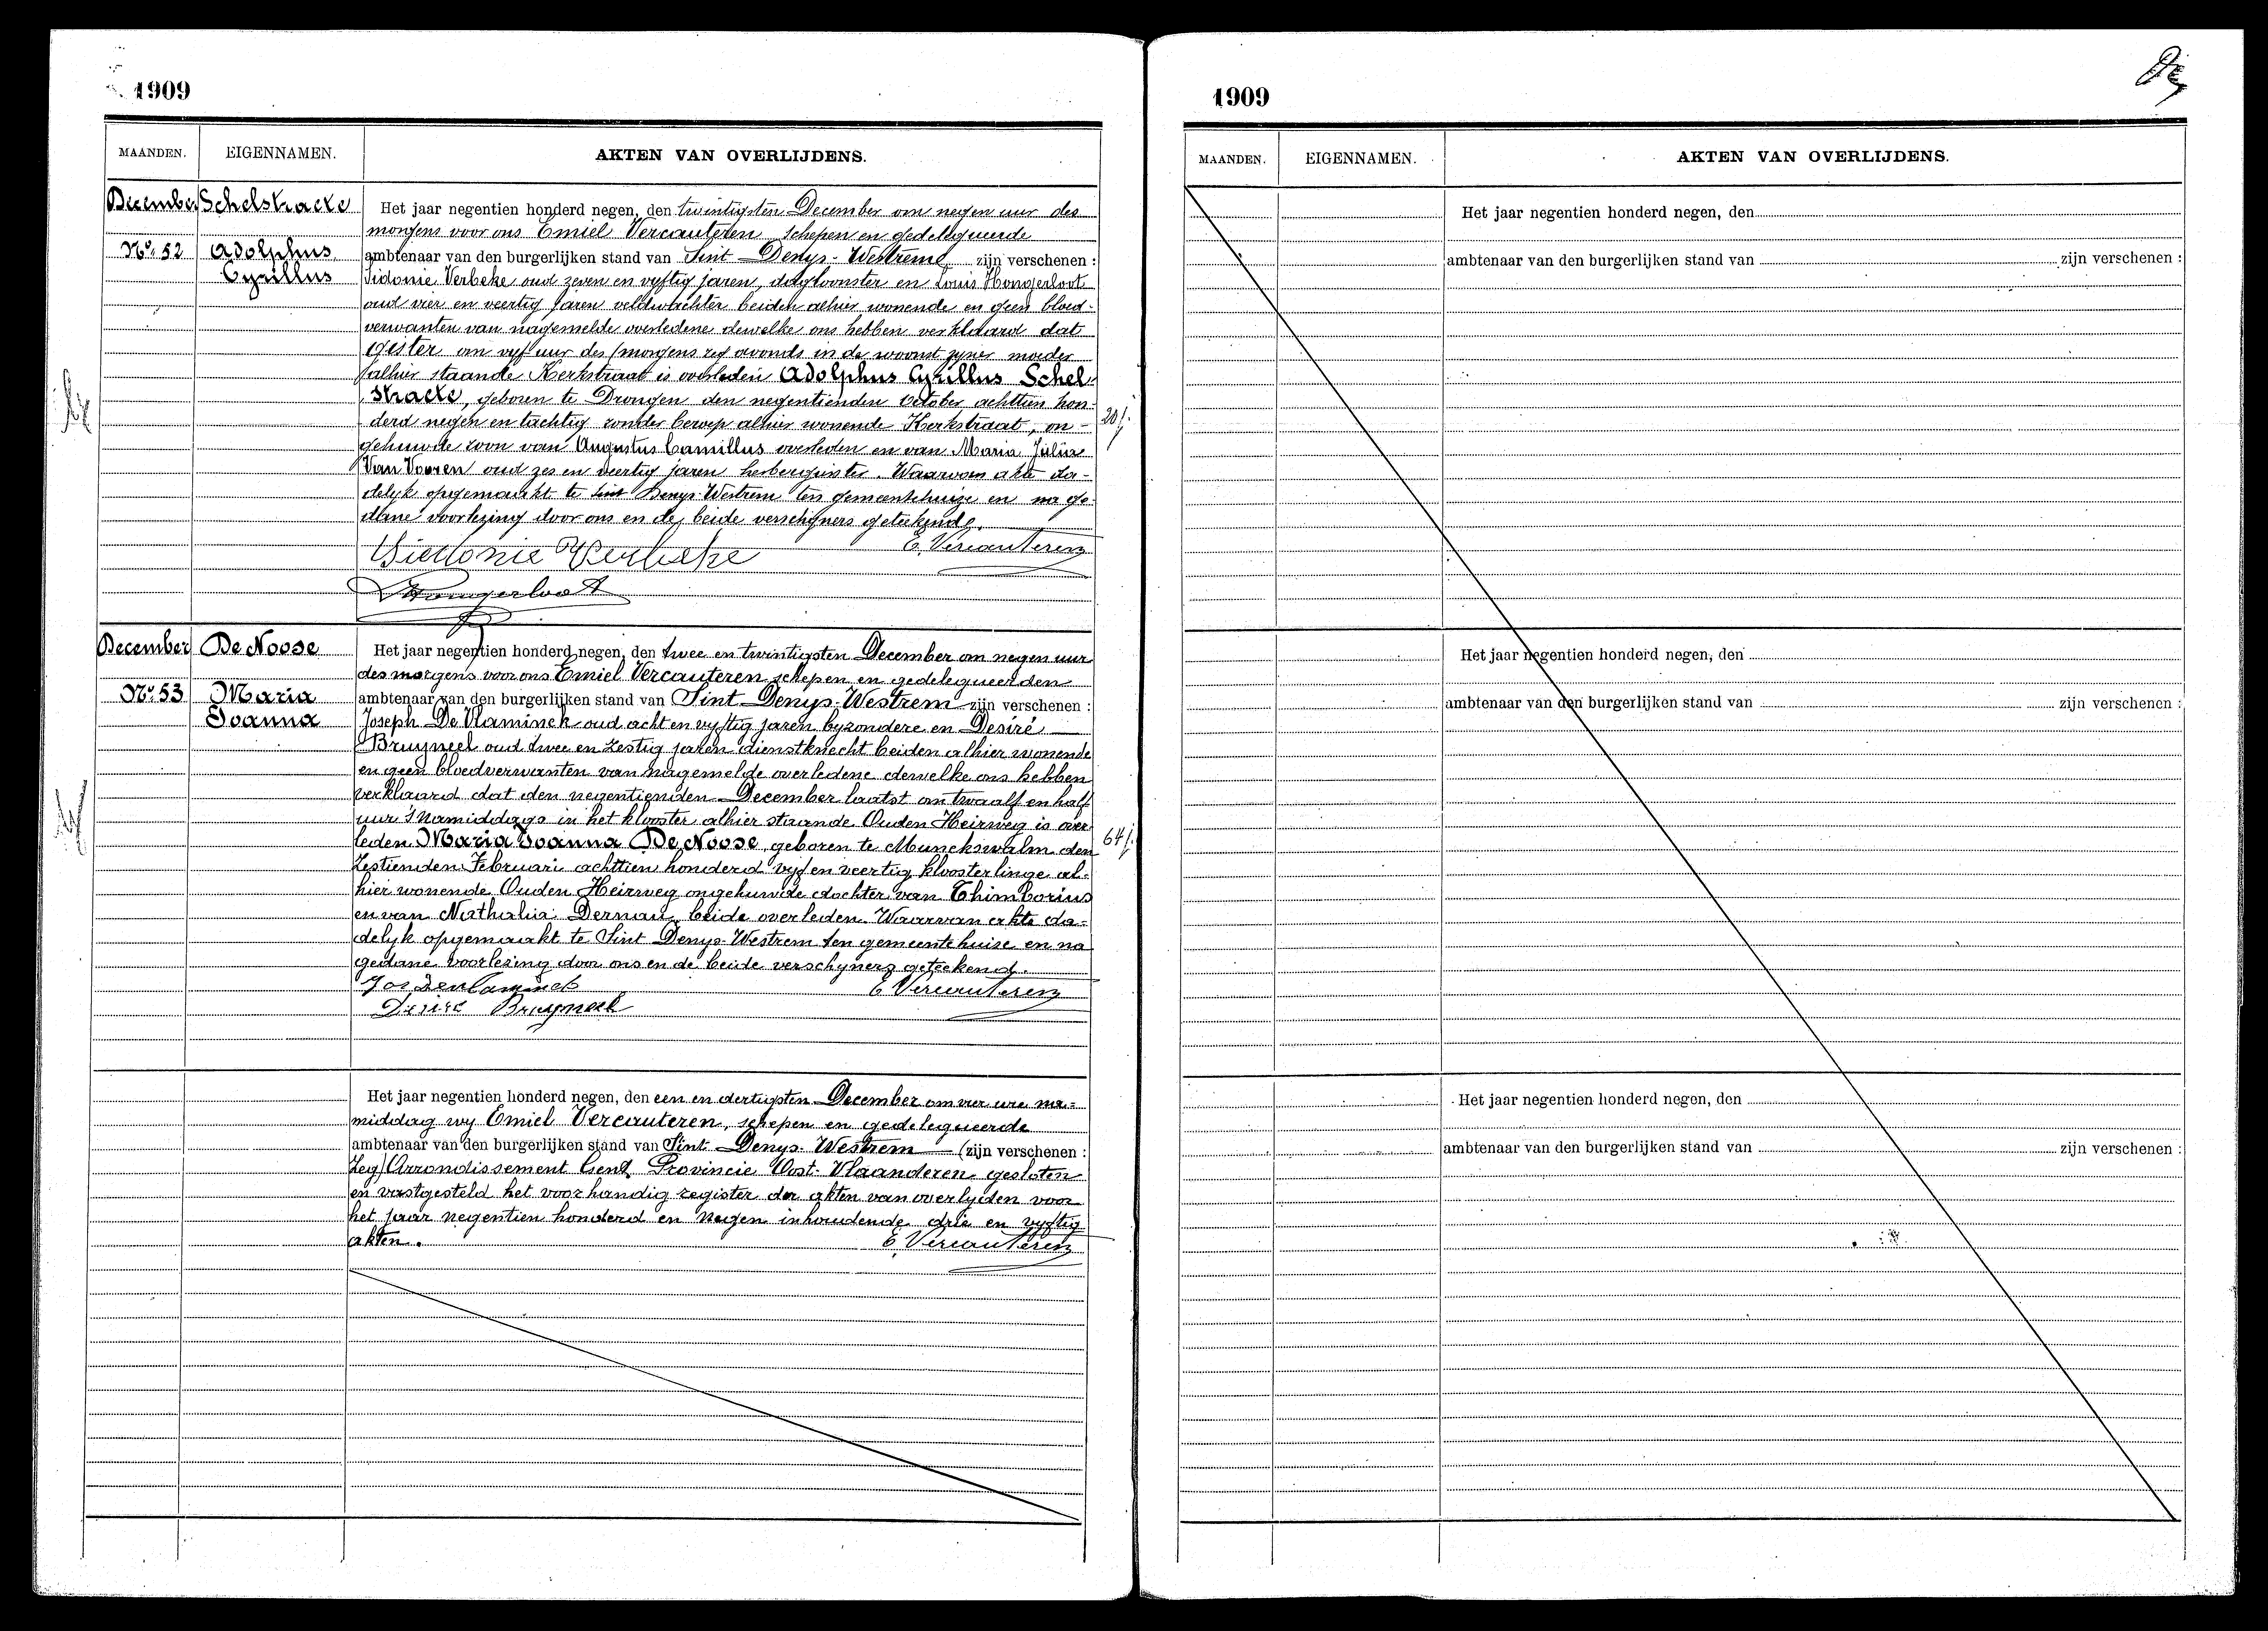 1909
MAANDEN. EIGENNAMEN. AKTEN VAN OVERLIJDENS.
December Schelstraete Het jaar negentien honderd negen, den twintigsten December om negen uur des
morgens voor ons Emiel Vercauteren schepen en gedelegueerde
No. 52 Adolphus ambtenaar van den burgerlijken stand van Sint Denys-Westrem zijn verschenen :
Cyrillus Sidonie Verbeke oud zeven en vyftig jaren, dagloonster en Louis Hongerloot
oud vier en veertig jaren veldwachter beiden alhier wonende en geen bloed-
verwanten van nagemelde overledene dewelke ons hebben verklaard dat
gister om vyf uur des (morgens zeg avonds in de woonst zyner moeder
alhier staande Kerkstraat is overleden Adolphus Cyrillus Schel-
straete, geboren te Drongen den negentienden October achttien hon-
derd negen en tachtig zonder beroep alhier wonende Kerkstraat, on- 20 j.
gehuwde zoon van Augustus Camillus overleden en van Maria Julia
Van Vooren oud zes en veertig jaren herbergierster. Waarvan akte da-
delyk opgemaakt te Sint Denys-Westrem ten gemeentehuize en na ge-
dane voorlezing door ons en de beide verschijners geteekend.
Siedonie Verbeke E. Vercauteren
Hongerloot
December De Noose Het jaar negentien honderd negen, den twee en twintigsten December om negen uur
des morgens voor ons Emiel Vercauteren schepen en gedelegueerden
No. 53 Maria ambtenaar van den burgerlijken stand van Sint Denys-Westrem zijn verschenen :
Joanna Joseph De Vlaminck oud acht en vyftig jaren byzondere en Desiré
Bruyneel oud twee en zestig jaren dienstknecht beiden alhier wonende
en geen bloedverwanten van nagemelde overledene dewelke ons hebben
verklaard dat den negentienden December laatst om twaalf en half
uur 's namiddags in het klooster alhier staande Ouden Heirweg is over
leden Maria Joanna De Noose, geboren te Munckswalm den 64 j.
Zestienden Februari achttien honderd vyf en veertig kloosterlinge al-
hier wonende Ouden Heirweg ongehuwde dochter van Thimborius
en van Nathalia Dernau beide overleden. Waarvan akte da-
delyk opgemaakt te Sint Denys-Westrem ten gemeentehuize en na
gedane voorlezing door ons en de beide verschyners geteekend.
Jos Devlaminck E. Vercauteren
Desiré Bruyneel
Het jaar negentien honderd negen, den een en dertigsten December om vier ure na-
middag wy Emiel Vercauteren, schepen en gedelegueerde
ambtenaar van den burgerlijken stand van Sint Denys-Westrem (zijn verschenen :
Zeg) Arrondissement Gent Provincie Oost-Vlaanderen gesloten
en vastgesteld het voorhandig register der akten van overlyden voor
het jaar negentien honderd en negen inhoudende drie en vyftig
akten. E. Vercauteren
1909
MAANDEN. EIGENNAMEN. AKTEN VAN OVERLIJDENS.
Het jaar negentien honderd negen, den
ambtenaar van den burgerlijken stand van zijn verschenen :
Het jaar negentien honderd negen, den
ambtenaar van den burgerlijken stand van zijn verschenen :
Het jaar negentien honderd negen, den
ambtenaar van den burgerlijken stand van zijn verschenen :